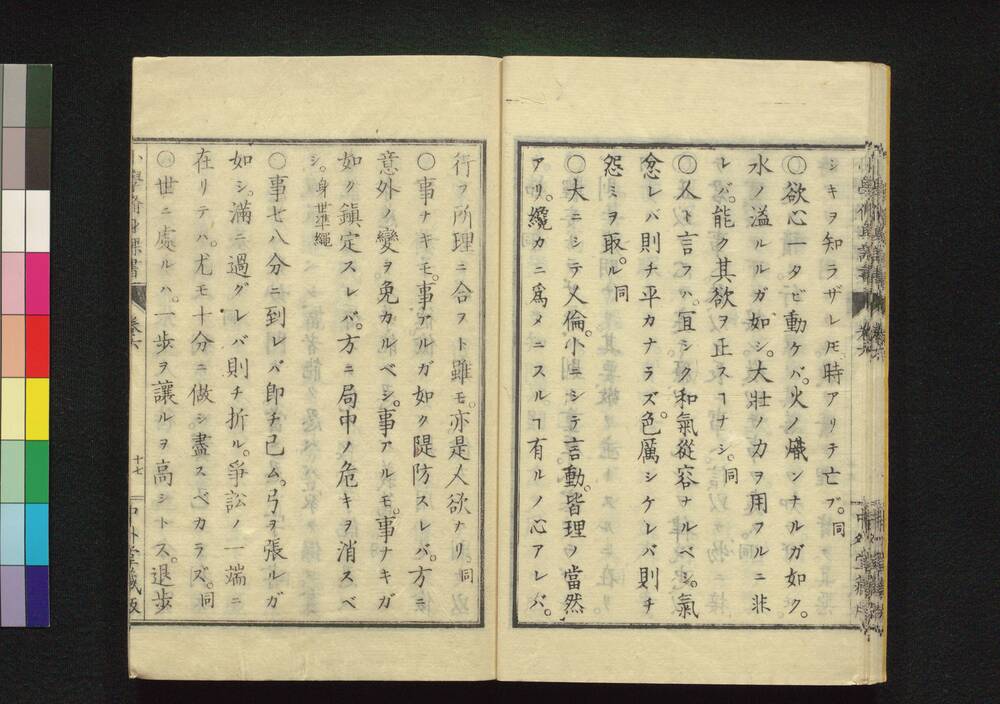 シキヲ知ラザレ𪜈時アリチ亡ブ。同
〇欲心一タビ動ケバ。火ノ熾ンナルガ如ク。
水ノ溢ルルガ如シ。大壯ノ力ヲ用フルニ非
レバ。能ク其欲ヲ正スヿナシ。同
〇人ト言フハ。宜シク和氣從容ナルベシ。氣
忿レバ則チ平カナラズ。色厲シケレバ則チ
怨ミヲ取ル。同
〇大ニシテ人倫。小ニシテ言動。皆理ノ當然
アリ。纔カニ爲メニスルヿ有ルノ心アレバ。
行フ所理ニ合フト雖モ。亦是人欲ナリ。同
〇事ナキモ。事アルガ如ク隄防スレバ。方ニ
意外ノ變ヲ免カルベシ。事アルモ。事ナキガ
如ク鎭定スレバ。方ニ局中ノ危キヲ消スベ
シ。身世準繩
〇事七八分ニ到レバ即チ已ム。弓ヲ張ルガ
如シ。滿ニ過グレバ則チ折ル。爭訟ノ一端ニ
在リテハ。尤モ十分ニ做シ盡スベカラズ。同
〇世ニ處ルハ。一歩ヲ讓ルヲ高シトス。退歩
小學脩身課書 卷六 十七 中外堂藏版